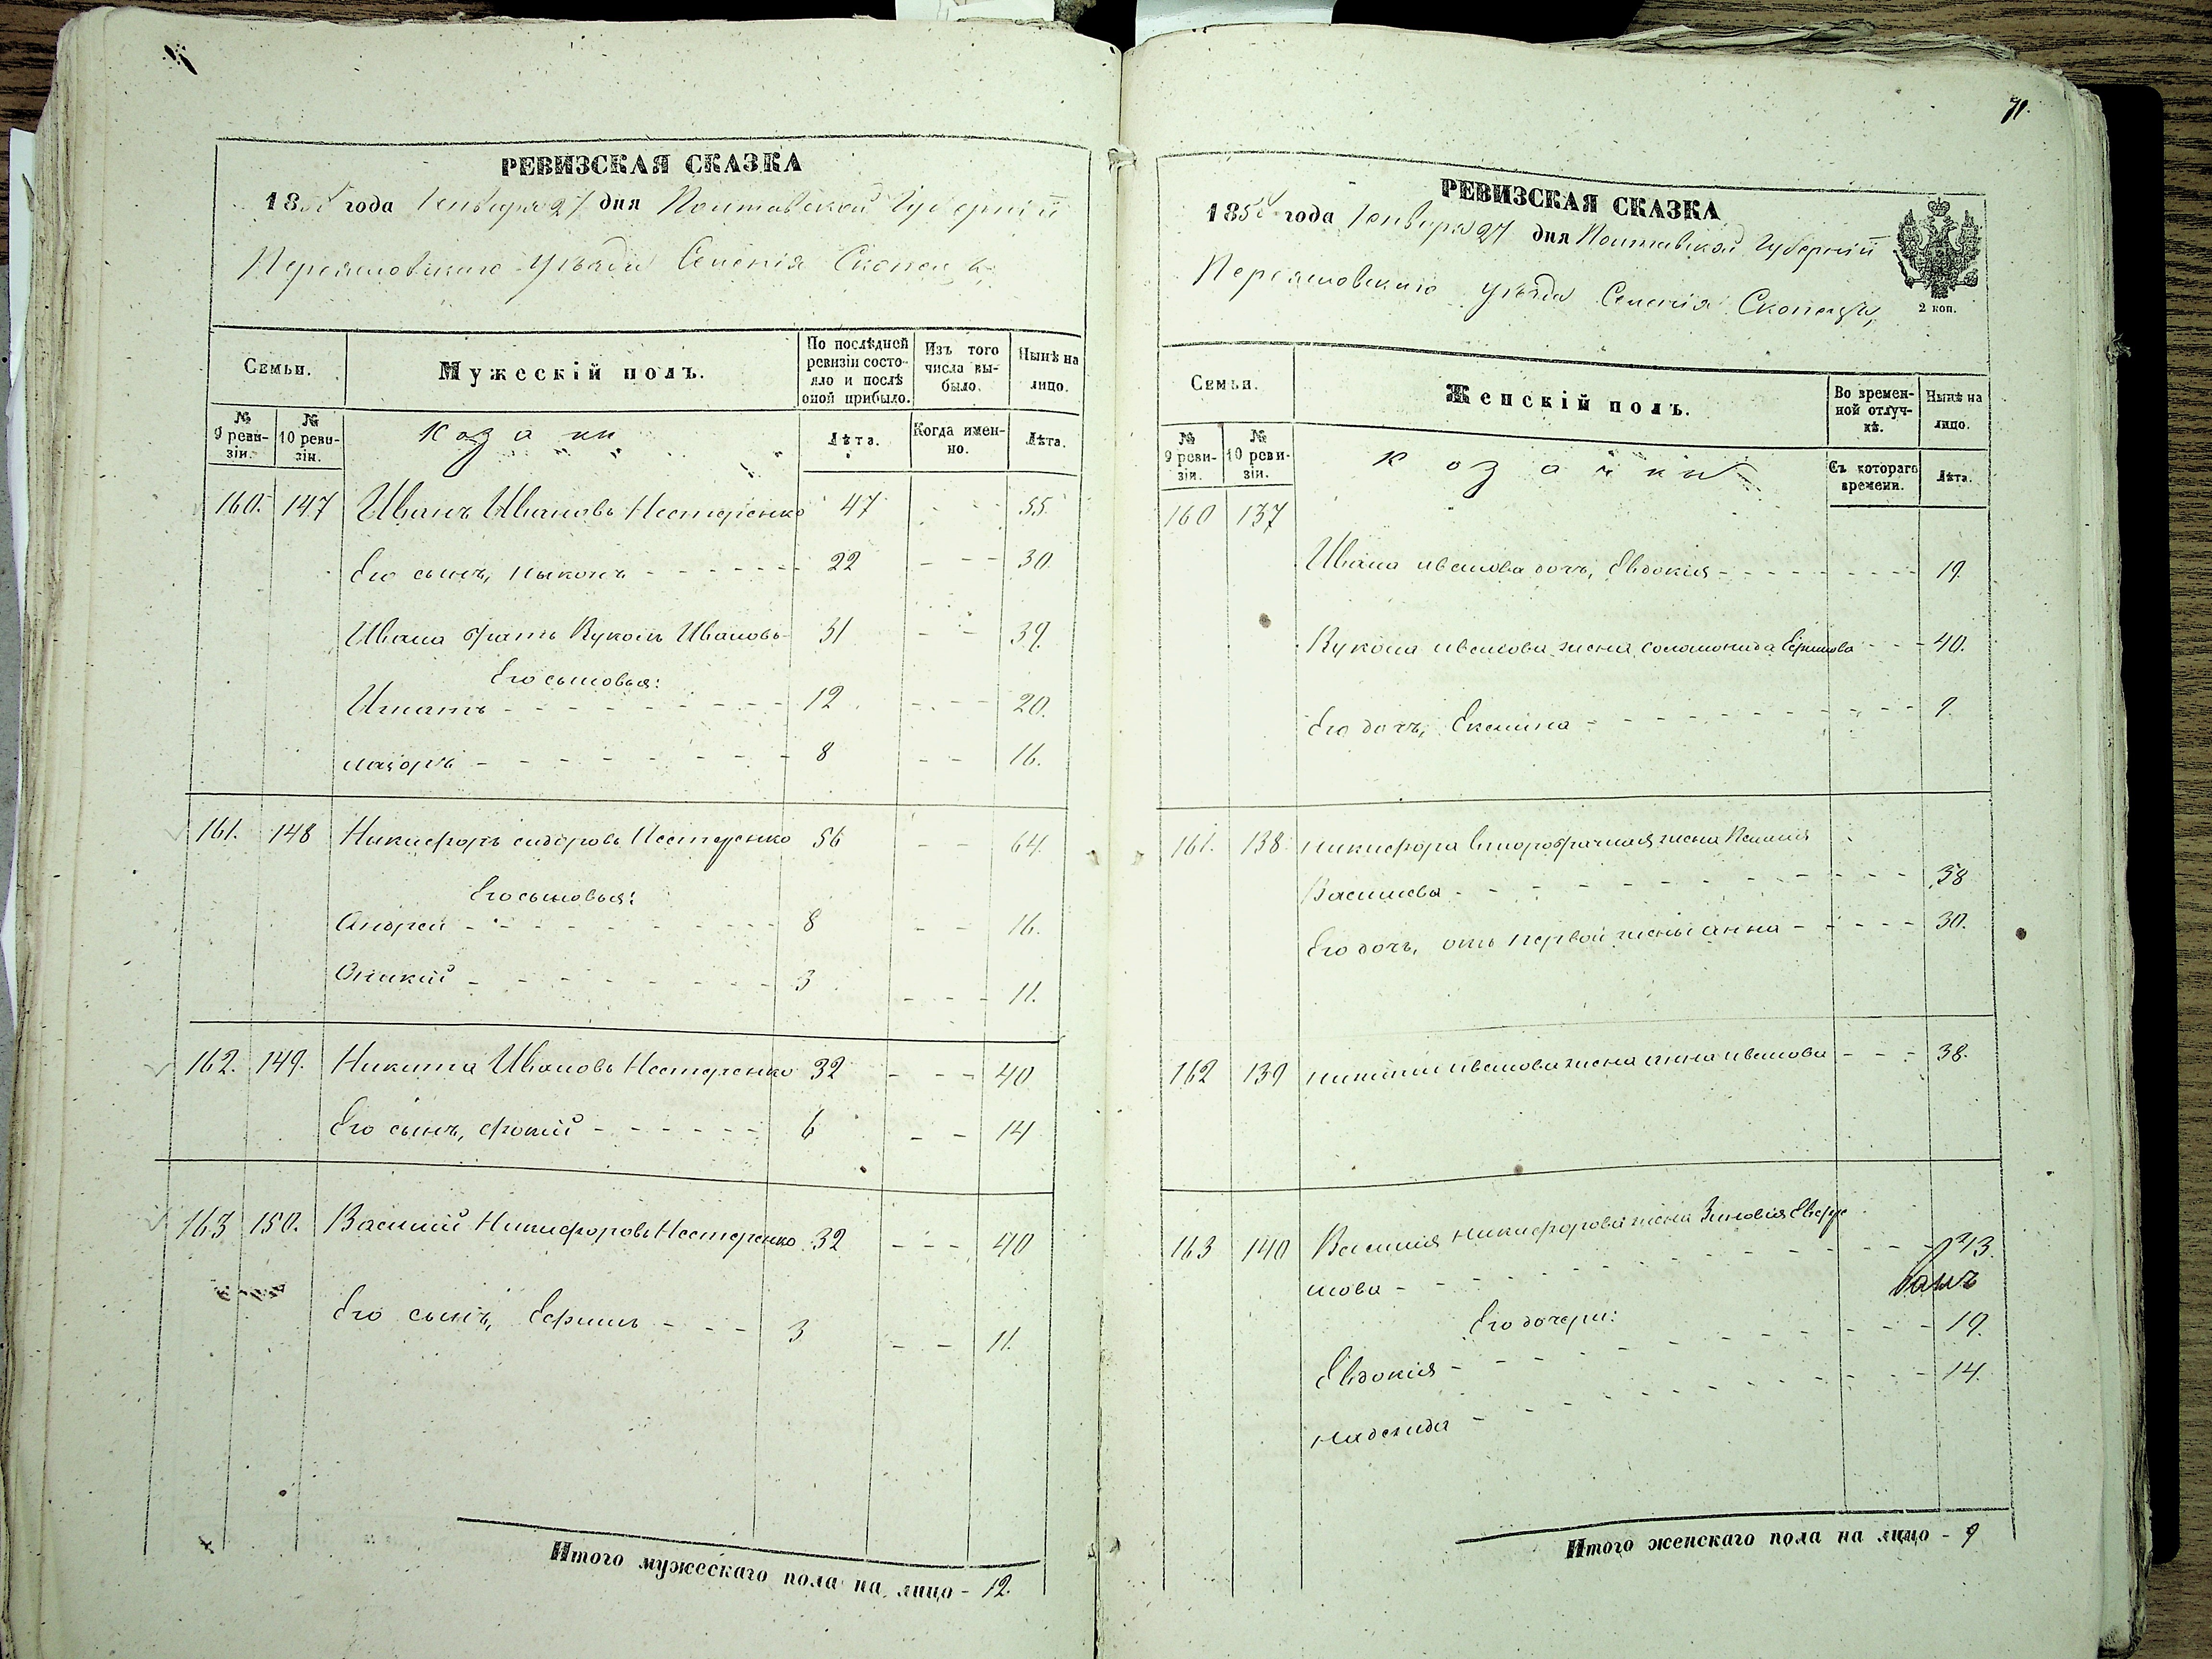 РЕВИЗСКАЯ СКАЗКА
185 года Генваря 27 дня Полтавской Губерніи
Переяславскаго уѣзда Селенія Скопецъ
Семьи.
Мужескій полъ.
По послѣдней ревизіи состояло и послѣ оной прибыло.
Изъ того числа вы-было.
Нынѣ на лицо.
№ 9 реви-зіи.
№ 10 реви-зіи.
Козаки
Лѣта.
Когда имен-но.
Лѣта.
160. 147 Иванъ Ивановъ Нестеренко 47 - - - 55.
Его сынъ, Никонъ - - - - - - - 22 - - - 30.
Ивана братъ Вуколъ Ивановъ 31 - - 39.
Его сыновья:
Игнатъ - - - - - - - - - 12. - - - - 20.
Лазорь - - - - - - - - - 8 - - 16.
161. 148 Никифоръ Сидоровъ Нестеренко 56 - - 64.
Его сыновья:
Андрей - - - - - - - - - 8 - - 16.
Оникій - - - - - - - - 3 - - - 11.
162. 149. Никита Ивановъ Нестеренко 32 - - - 40
Его сынъ, Фокий - - - - - - 6 - - 14
163 150. Василий Никифоровъ Нестеренко 32 - - - 40
Его сынъ, Ефимъ - - - 3 - - 11.
Итого мужескаго пола на лицо - 12.
71.
РЕВИЗСКАЯ СКАЗКА
185 года Генваря 27 дня Полтавской Губерніи
Переяславскаго уѣзда Селенія Скопецъ
2 коп.
Семьи.
Женскій полъ.
Во времен-ной отлуч-кѣ.
Нынѣ на лицо.
№ 9 реви-зіи.
№ 10 реви-зіи.
Козачки
Съ котораго времени.
Лѣта.
160 137
Ивана Иванова дочь, Евдокія - - - - - - - - 19.
Вукола Иванова жена Соломонида Ефимова - - - 40.
Его дочь, - - - - - - - - - - 9.
161. 138. Никифора второбрачная жена
Васильева - - - - - - - - - - - - 38
Его дочь, отъ первой жены Анна - - - - - 30.
162 139 Никиты Иванова жена Анна Иванова - - - 38.
163 140 Василія Никифорова жена Зиновія
мова - - - - - - - - - - - 43.
Его дочери:
Евдокія - - - - - - - - - - 19.
Надежда - - - - - - - - - - 14.
Итого женскаго пола на лицо - 9